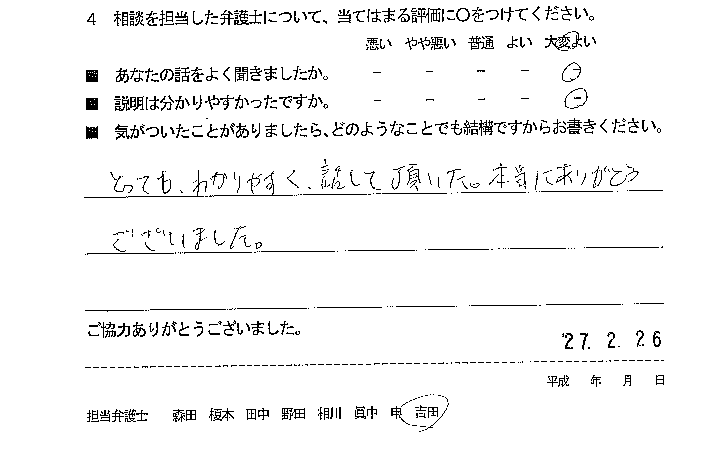 4 相談を担当した弁護士について、当てはまる評価に○をつけてください。
悪い やや悪い 普通 よい 大変よい
■ あなたの話をよく聞きましたか。 － － － － －
■ 説明は分かりやすかったですか。 － － － － －
■ 気がついたことがありましたら、どのようなことでも結構ですからお書きください。
とっても、わかりやすく、話して頂いた。本当にありがとう
ございました。
ご協力ありがとうございました。
'27. 2. 26
平成 年 月 日
担当弁護士 森田 榎本 田中 野田 相川 眞中 申 吉田